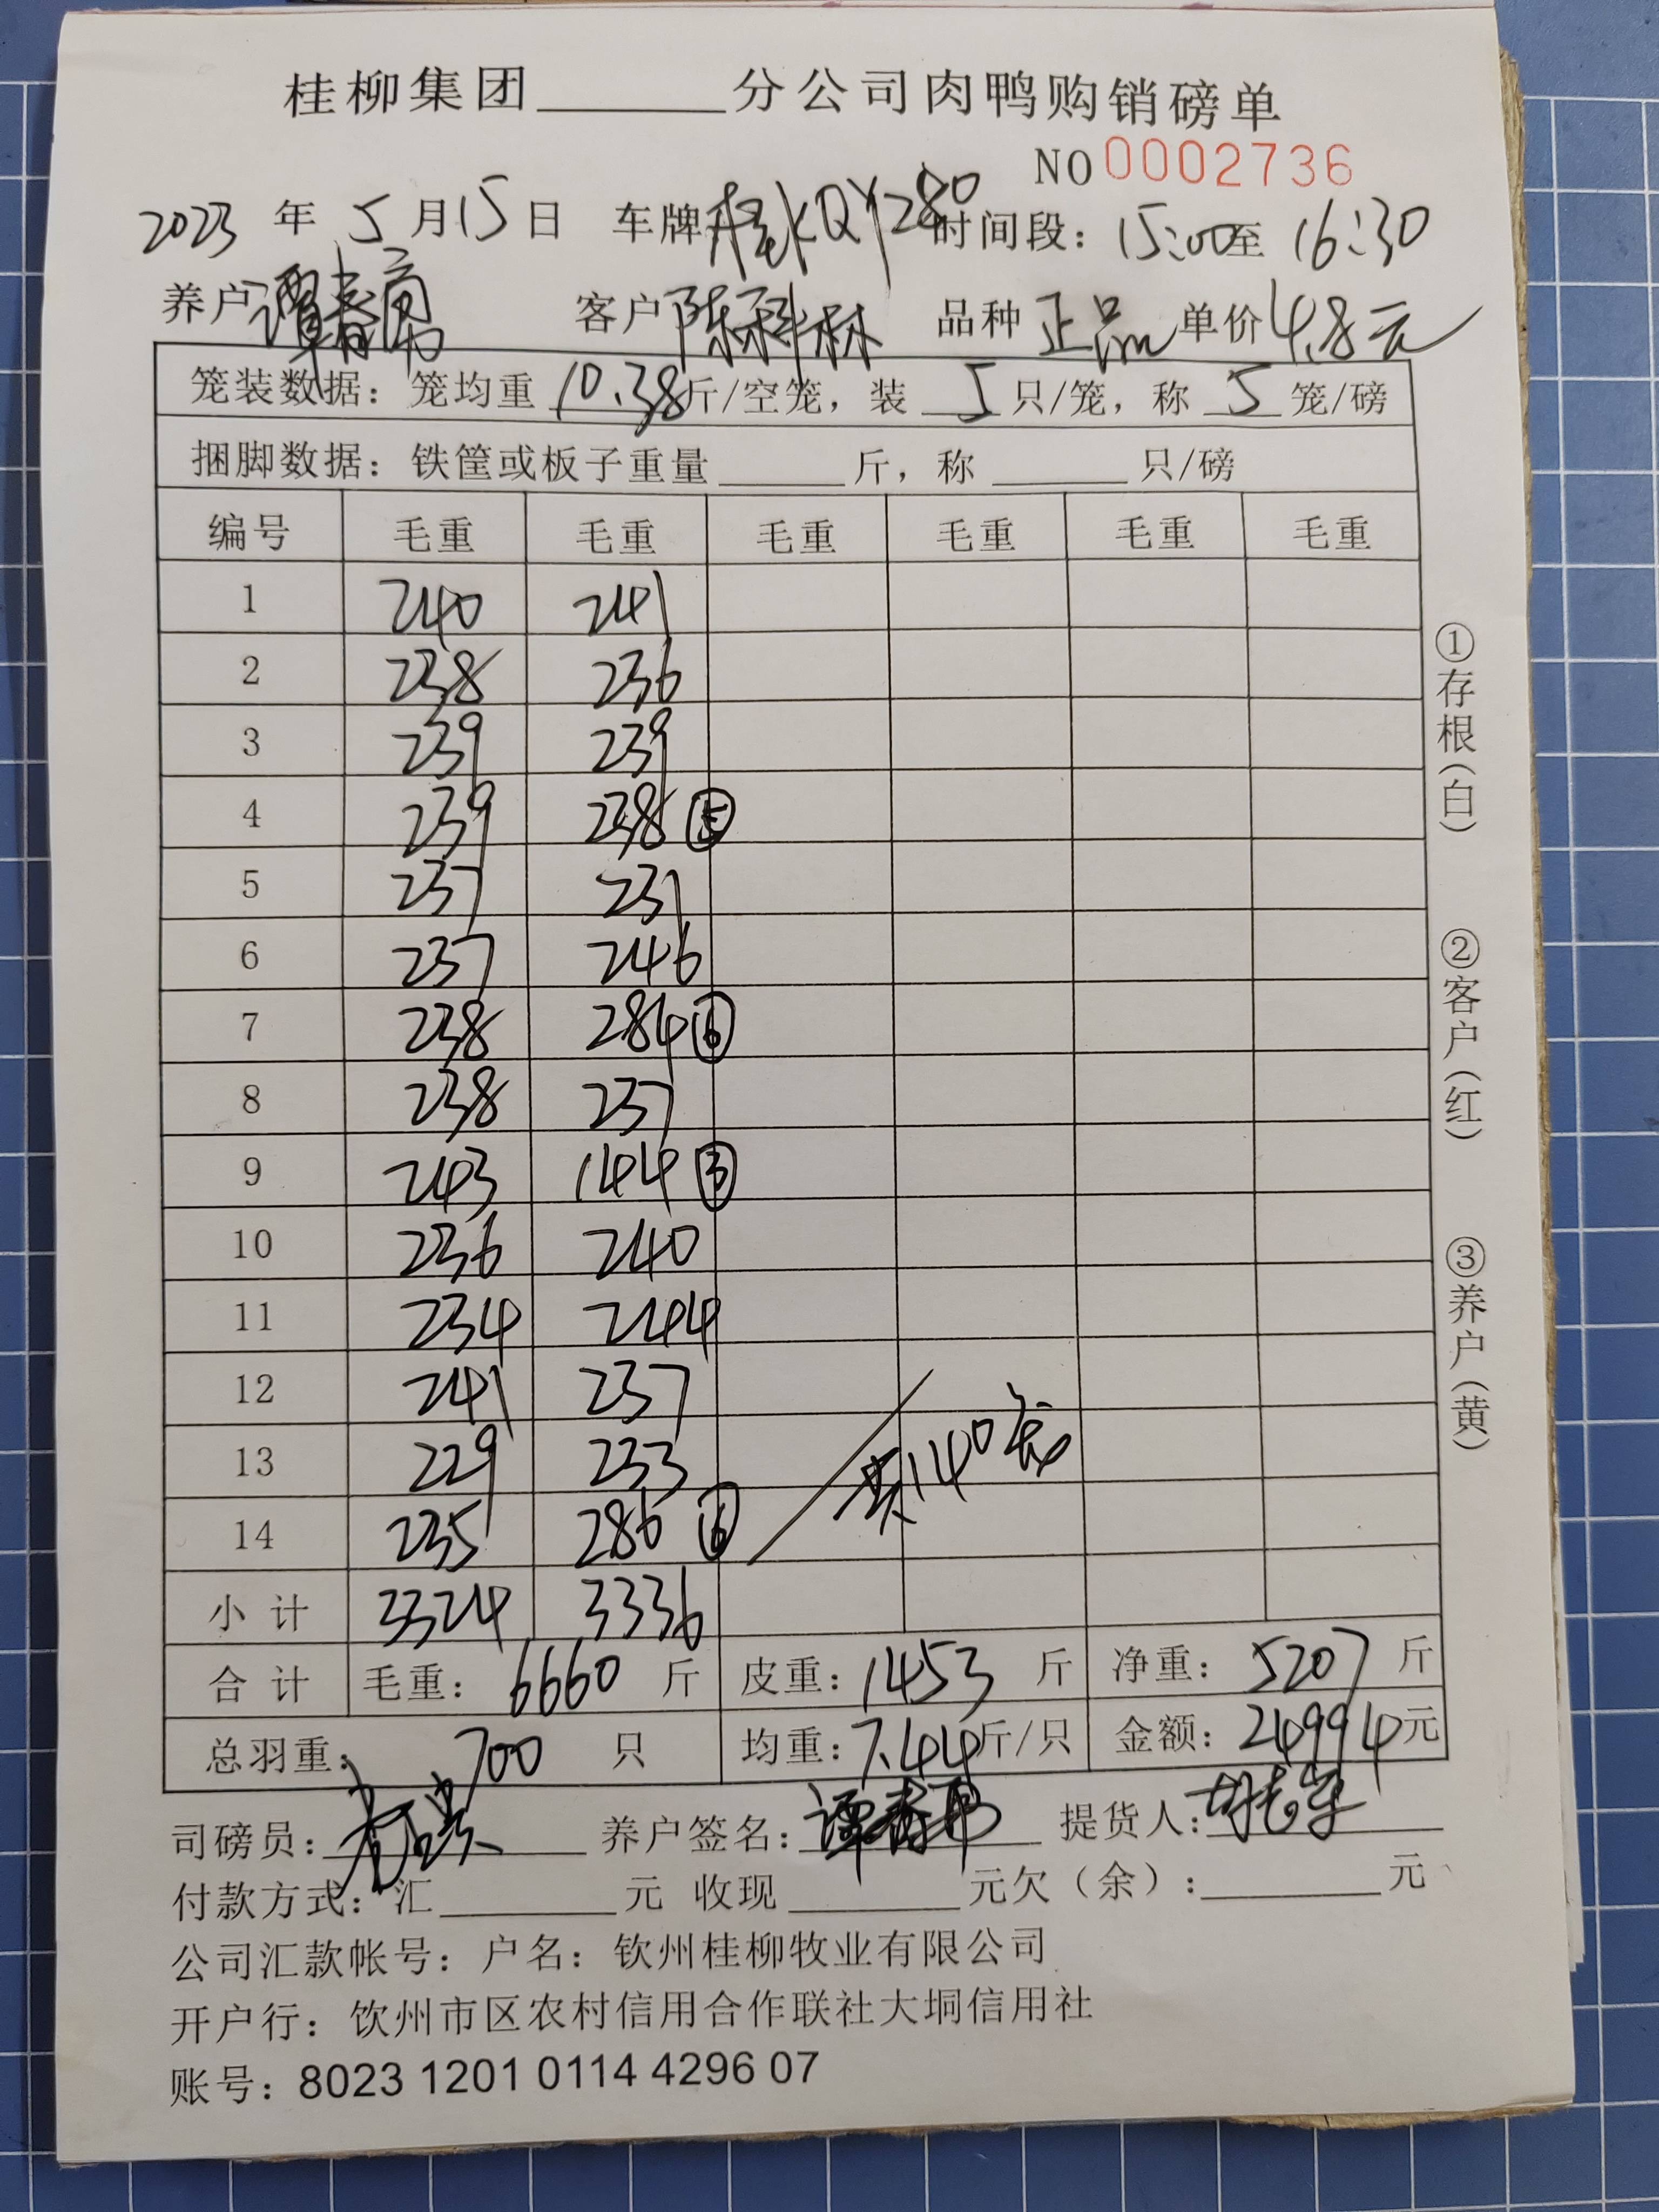 桂柳集团______分公司肉鸭购销磅单
NO 0002736
2023 年 5 月 15 日 车牌 桂KQY280 时间段：15:00 至 16:30
养户 谭春 客户 陈科林 品种 正品 单价 4.8元
笼装数据：笼均重 10.38 斤/空笼，装 5 只/笼，称 5 笼/磅
捆脚数据：铁筐或板子重量______斤，称______只/磅
编号 毛重 毛重 毛重 毛重 毛重 毛重
1 240 241
2 238 236
3 239 239
4 239 238 ⑤
5 237 231
6 237 246
7 238 284 ⑥
8 238 237
9 243 144 ③
10 236 240
11 234 244
12 241 237
13 229 233 共140笼
14 235 286 ⑥
小计 3324 3336
合计 毛重：6660 斤 皮重：1453 斤 净重：5207 斤
总羽重：700 只 均重：7.44 斤/只 金额：24994 元
司磅员： 养户签名：谭春 提货人：
付款方式：汇______元 收现______元欠（余）：______元
公司汇款帐号：户名：钦州桂柳牧业有限公司
开户行：钦州市区农村信用合作联社大垌信用社
账号：8023 1201 0114 4296 07
①存根（白）
②客户（红）
③养户（黄）